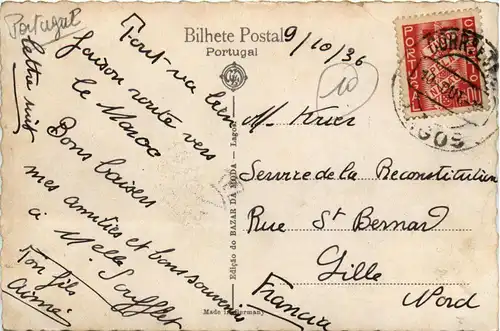 Portugal
Bilhete Postal
Portugal
9/10/36
10
Tout va bien
faisons route vers
le Maroc
Bons baisers
mes amitiés et bons souvenirs
à Melle
Ton fils
lettre suit
Edição do BAZAR DA MODA — Lagos
Made in Germany
M. Krier
Service de la Reconstitution
Rue St Bernard
Lille
Nord
Francia
PORTUGAL
CORREIO